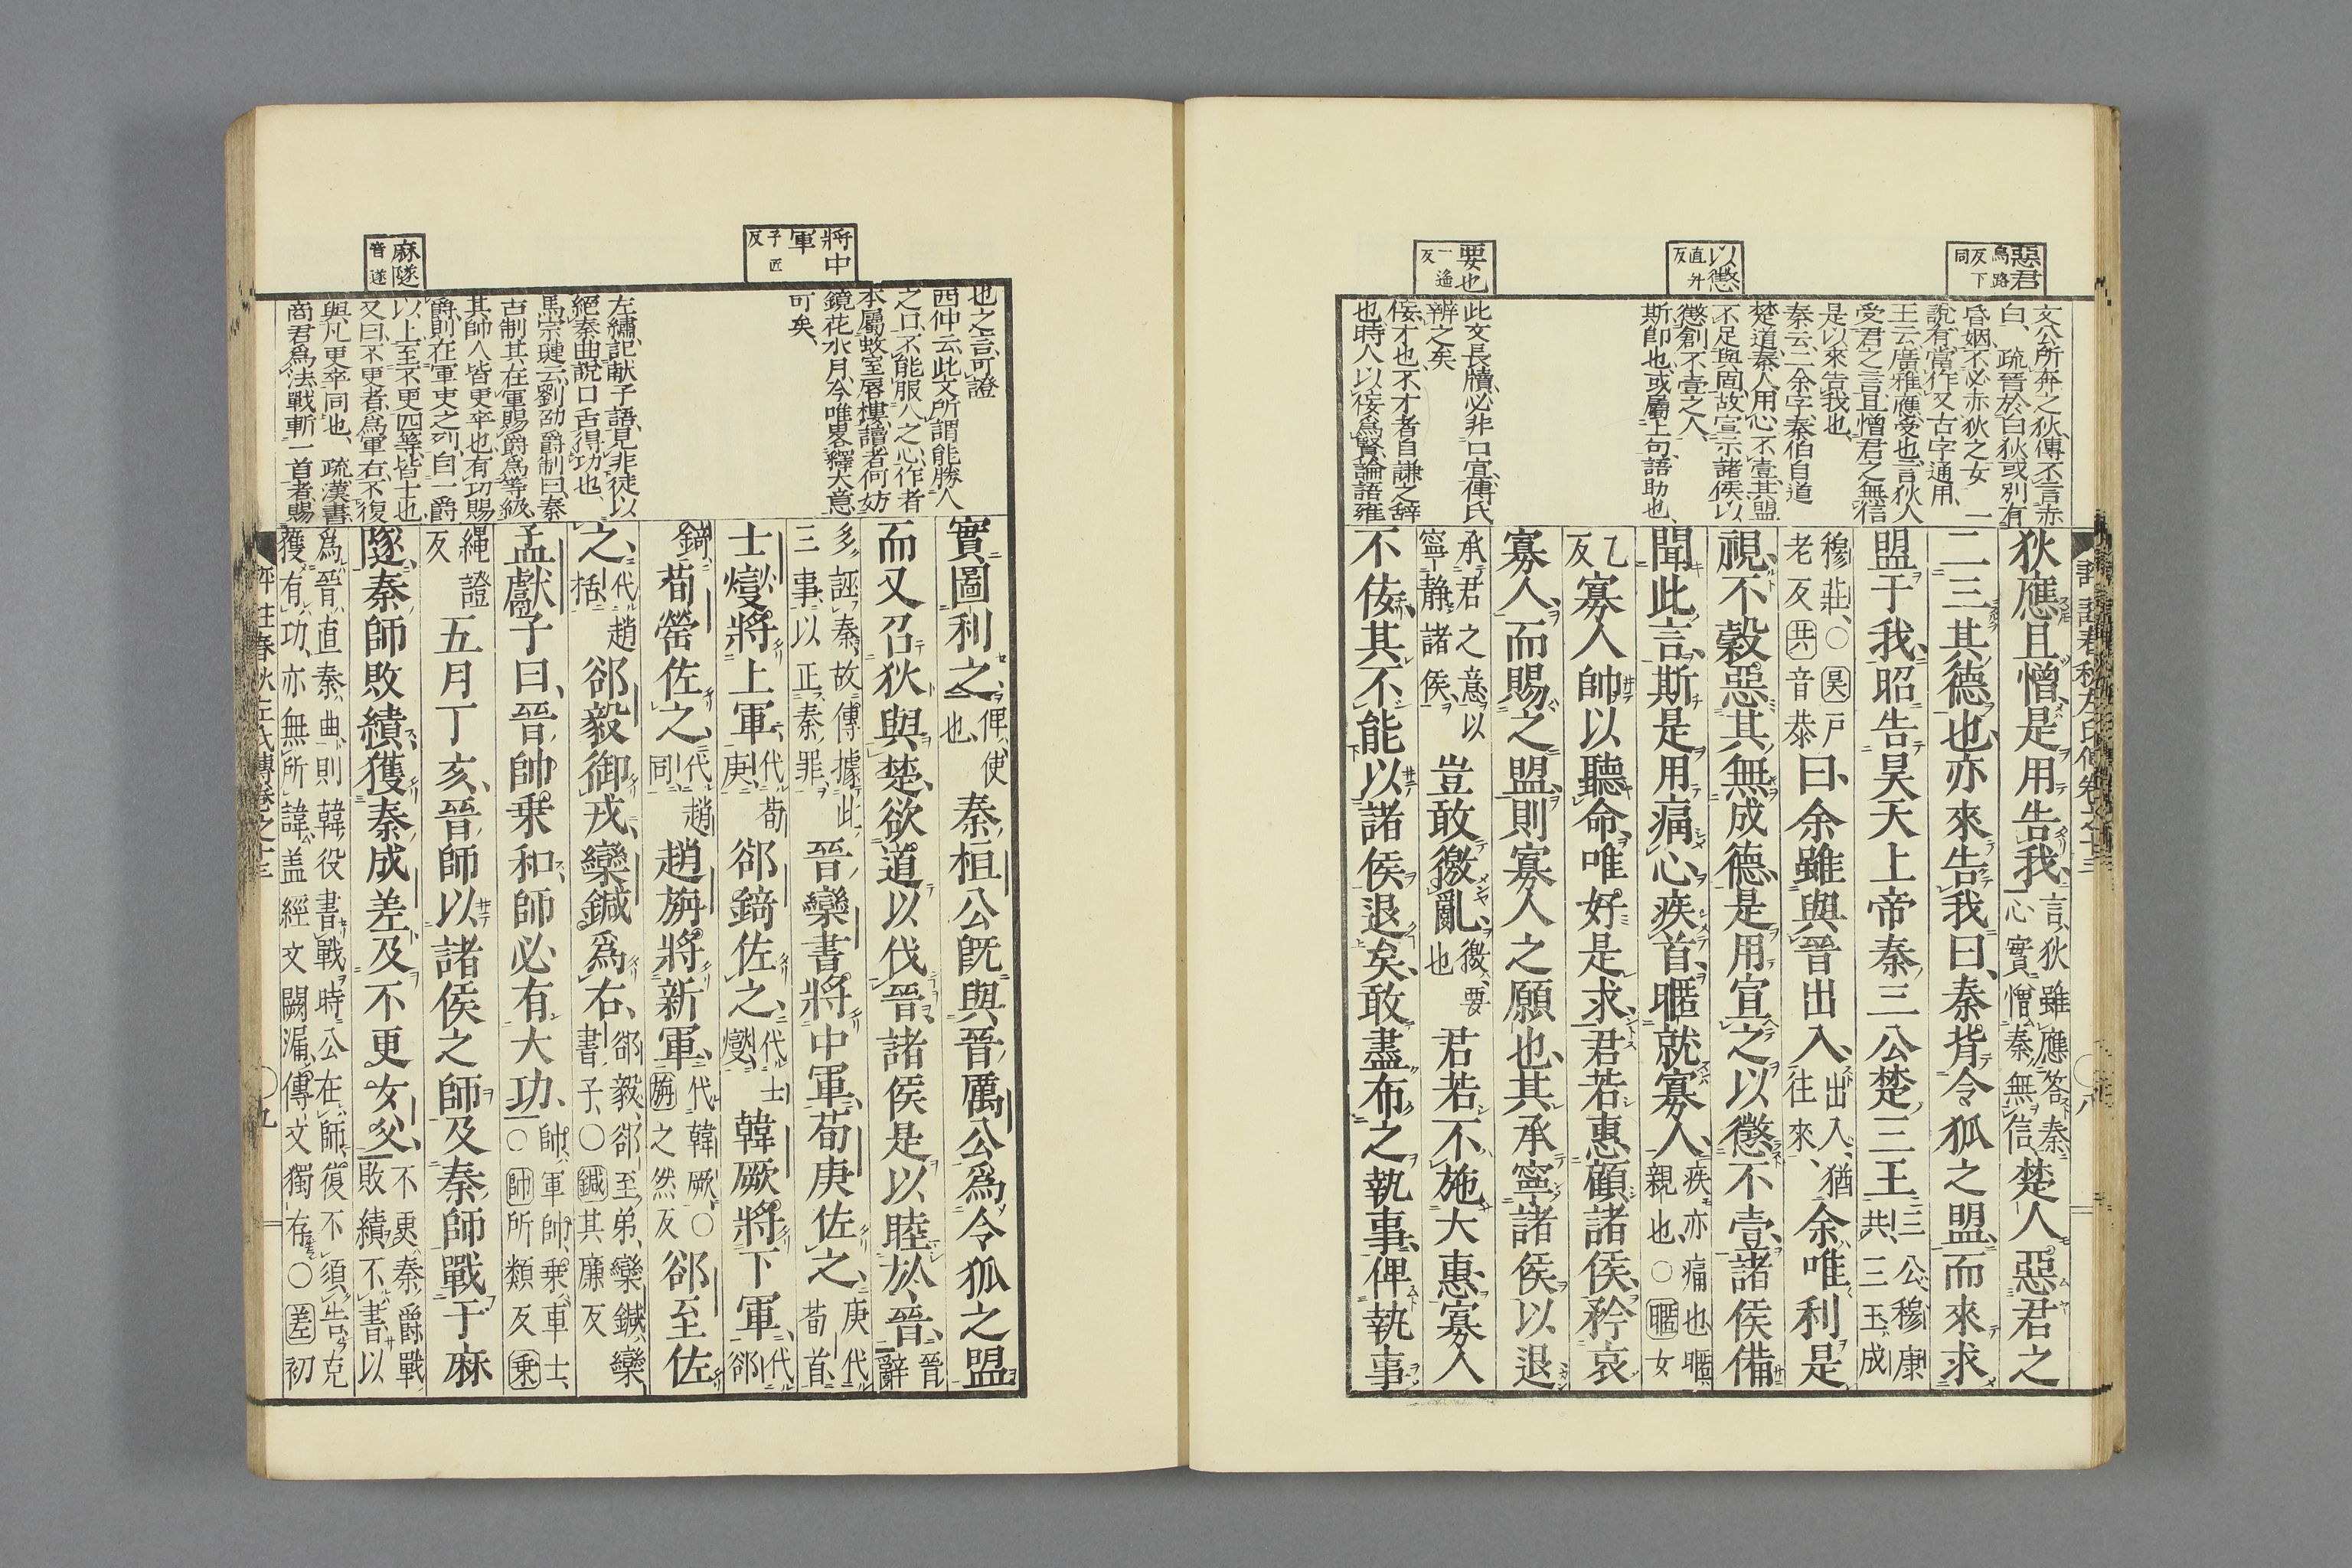 惡君
烏路
反下
同
以懲
直升
反
要也
一遙
反
文公所奔之狄傳不言赤
白、疏晉於白狄或別有
昏姻不必赤狄之女 一
說有當作又古字通用、
王云廣雅應受也言狄人
受君之言且憎君之無信
是以來告我也、
秦云二余字秦伯自道
楚道秦人用心不壹其盟
不足與固故宣示諸侯以
懲創不壹之人、
斯卽也或屬上句語助也、
此文長牘必非口宣傳氏
辨之矣
佞才也不才者自謙之辭
也時人以佞爲賢論語雍
狄應且憎是用告我言狄雖應答秦心實憎秦無信楚人惡君之
二三其德也亦來告我曰秦背令狐之盟而來求
盟于我昭告昊天上帝秦三公楚三王三公穆康共三王成
穆莊〇昊戸老反共音恭曰余雖與晉出入出入猶往來余唯利是
視不穀惡其無成德是用宣之以懲不壹諸侯備
聞此言斯是用痛心疾首暱就寡人疾亦痛也暱親也〇暱女
乙反寡人帥以聽命唯好是求君若惠顧諸侯矜哀
寡人而賜之盟則寡人之願也其承寧諸侯以退
承君之意以寧静諸侯豈敢徼亂徼要也君若不施大惠寡人
不佞其不能以諸侯退矣敢盡布之執事俾執事
將中
軍
子匠
反
麻隧
音遂
也之言可證
西仲云此文所謂能勝人
之口不能服人之心作者
本屬蚊室蜃樓讀者何妨
鏡花水月今唯畧釋大意
可矣、
左繡記献子語見非徒以
絕秦曲說口舌得功也、
馬宗璉云劉劭爵制曰秦
古制其在軍賜爵爲等級
其帥人皆更卒也有功賜
爵則在軍吏之列自一爵
以上至不更四等皆士也
又曰不更者爲軍右不復
與凡更卒同也、疏漢書
商君爲法戰斬一首者賜
實圖利之俾使也秦桓公旣與晉厲公爲令狐之盟
而又召狄與楚欲道以伐晉諸侯是以睦於晉晉辭
多誣秦故傳據此三事以正秦罪晉欒書將中軍荀庚佐之庚代荀首
士燮將上軍代荀庚郤錡佐之代士燮韓厥將下軍代郤
錡荀罃佐之代趙同趙旃將新軍代韓厥〇旃之然反郤至佐
之代趙括郤毅御戎欒鍼爲右郤毅郤至弟欒鍼欒書子〇鍼其廉反
孟獻子曰晉帥乗和師必有大功帥軍帥乗車士〇帥所類反乗
繩證反五月丁亥晉師以諸侯之師及秦師戰于麻
隧秦師敗績獲秦成差及不更女父不更秦爵戰敗績不書以
爲晉直秦曲則韓役書戰時公在師復不須告克獲有功亦無所諱盖經文闕漏傳文獨存〇差初
評註春秋左氏傳卷之十三
〇九